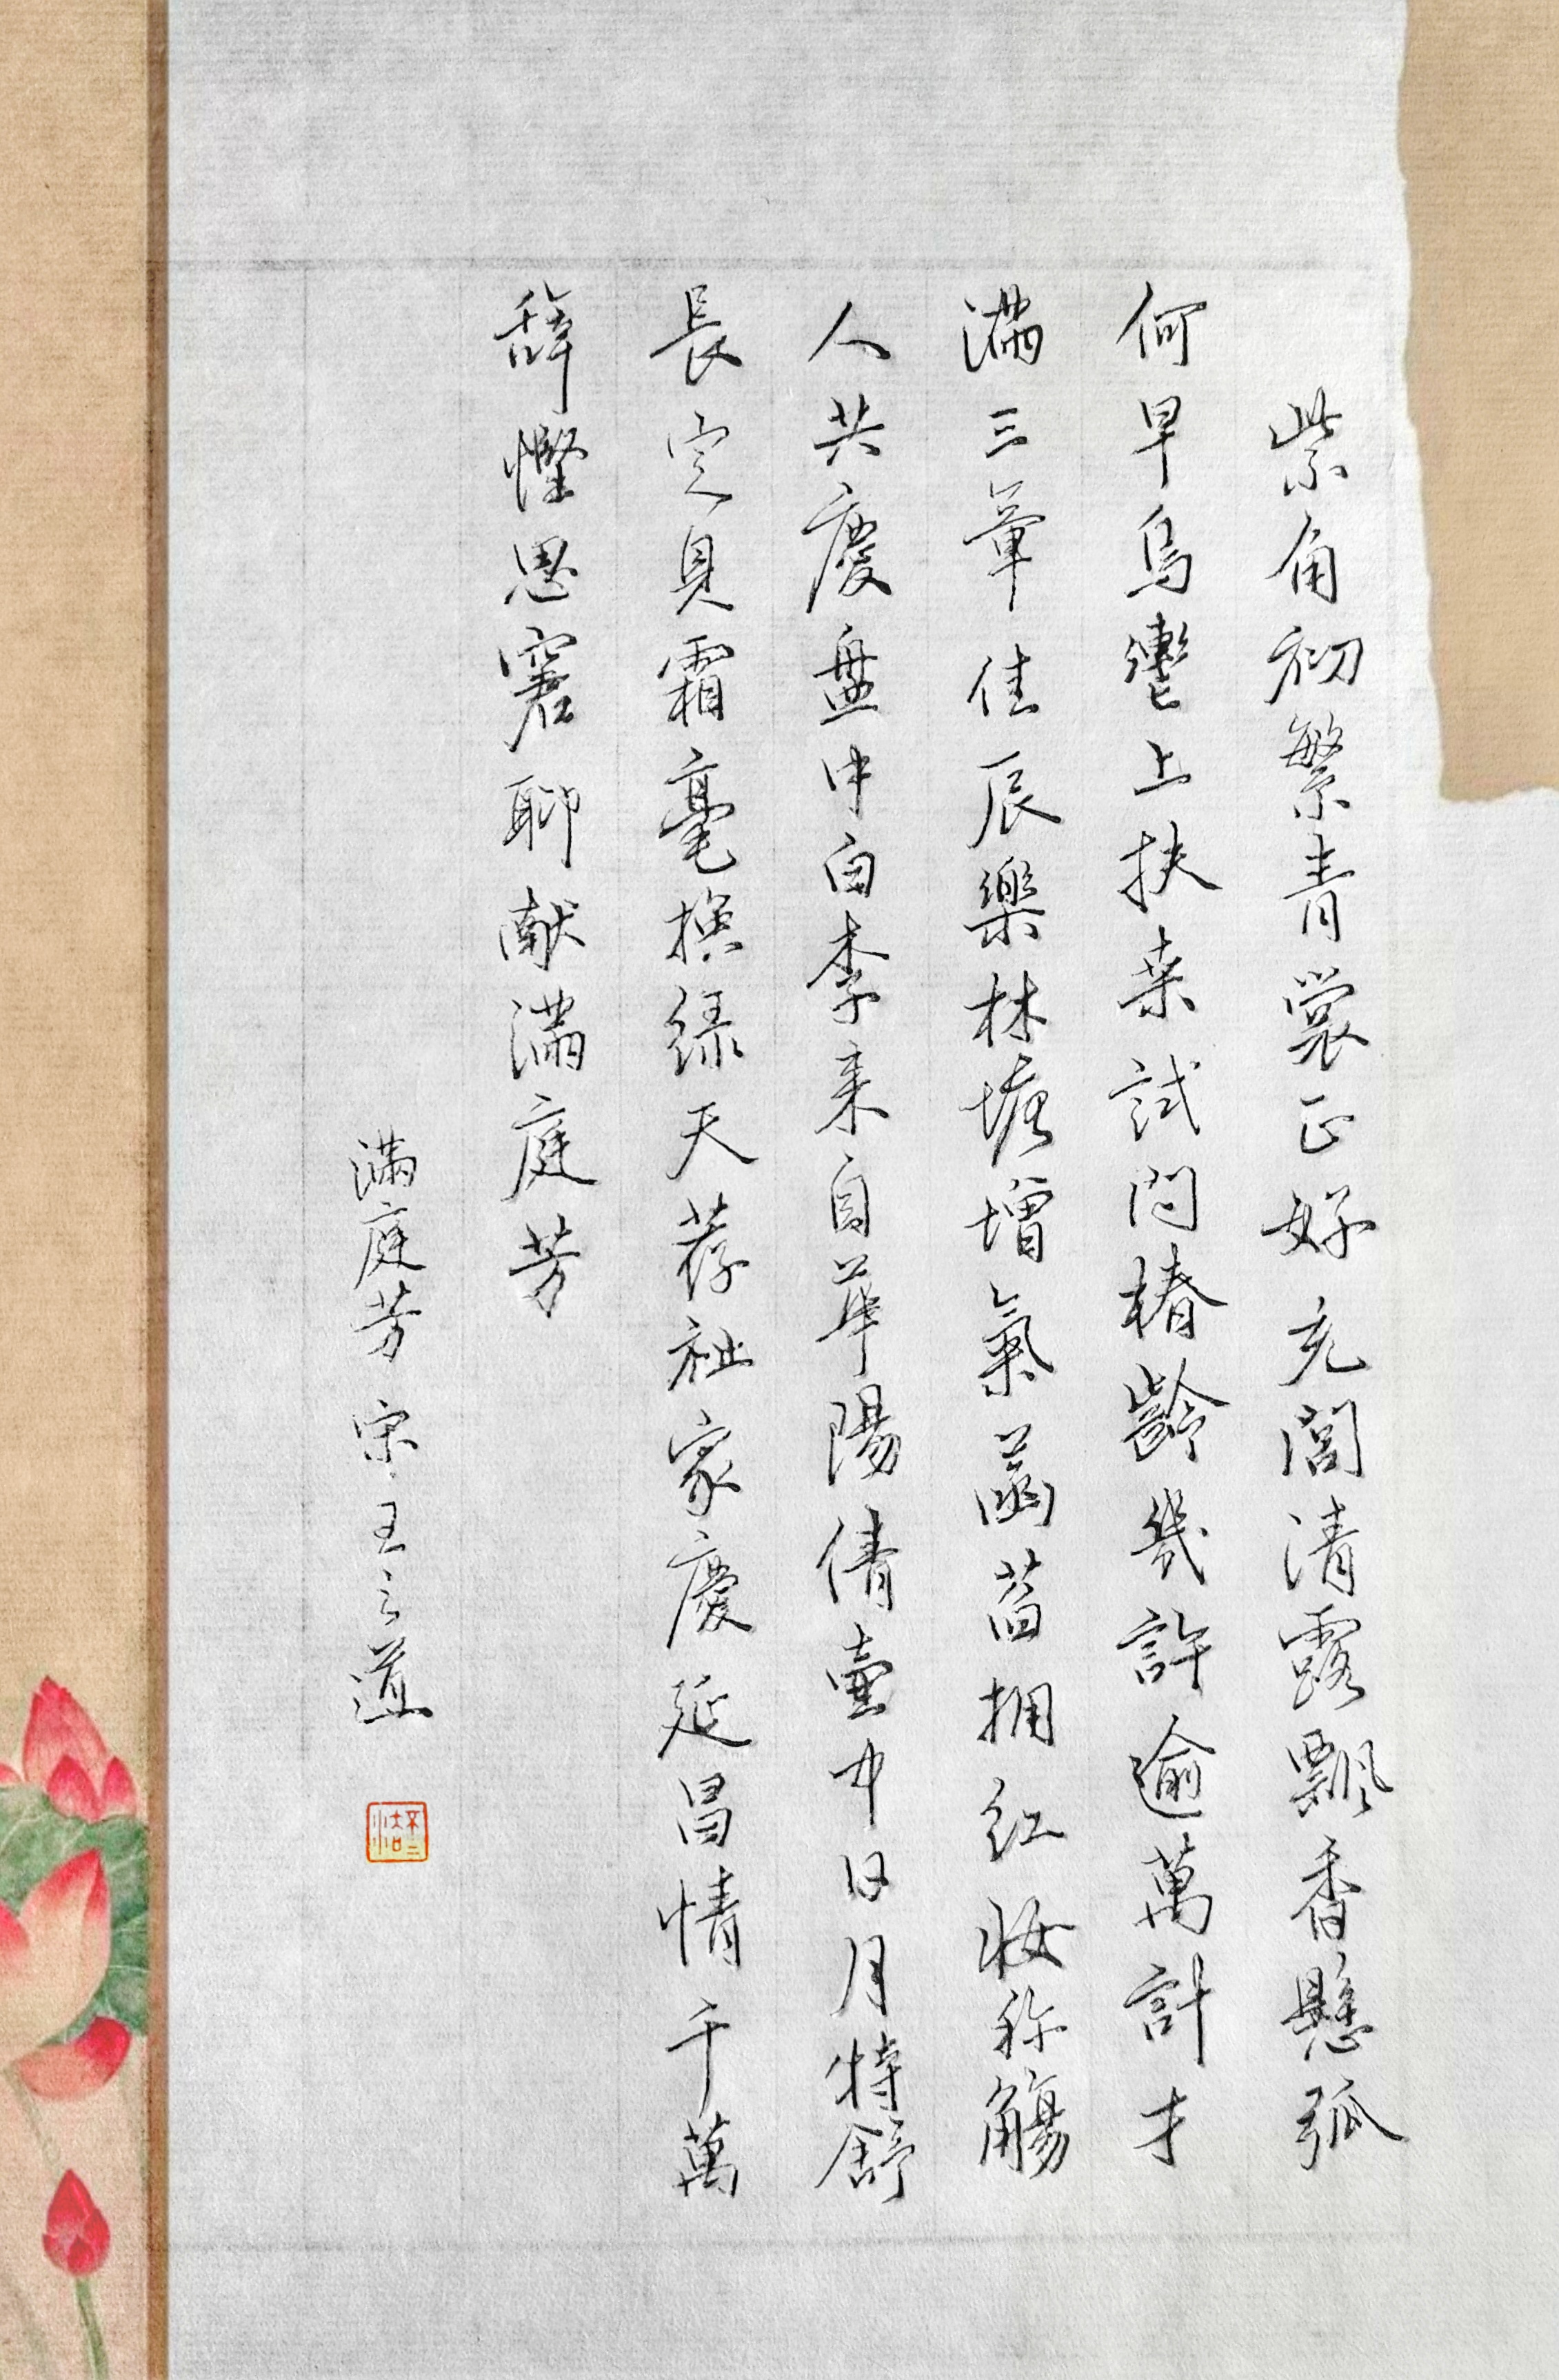 紫角初繁青裳正好充閭清露飄香懸弧
何早烏轡上扶桑試問椿齡幾許逾萬計才
滿三章佳辰樂林塘增氣菡萏擁紅妝稱觴
人共慶盤中白李來自華陽倩壺中日月特舒
長定見霜毫換綠天荐祉家慶延昌情千萬
辭慳思窘聊献滿庭芳
滿庭芳 宋 王之道